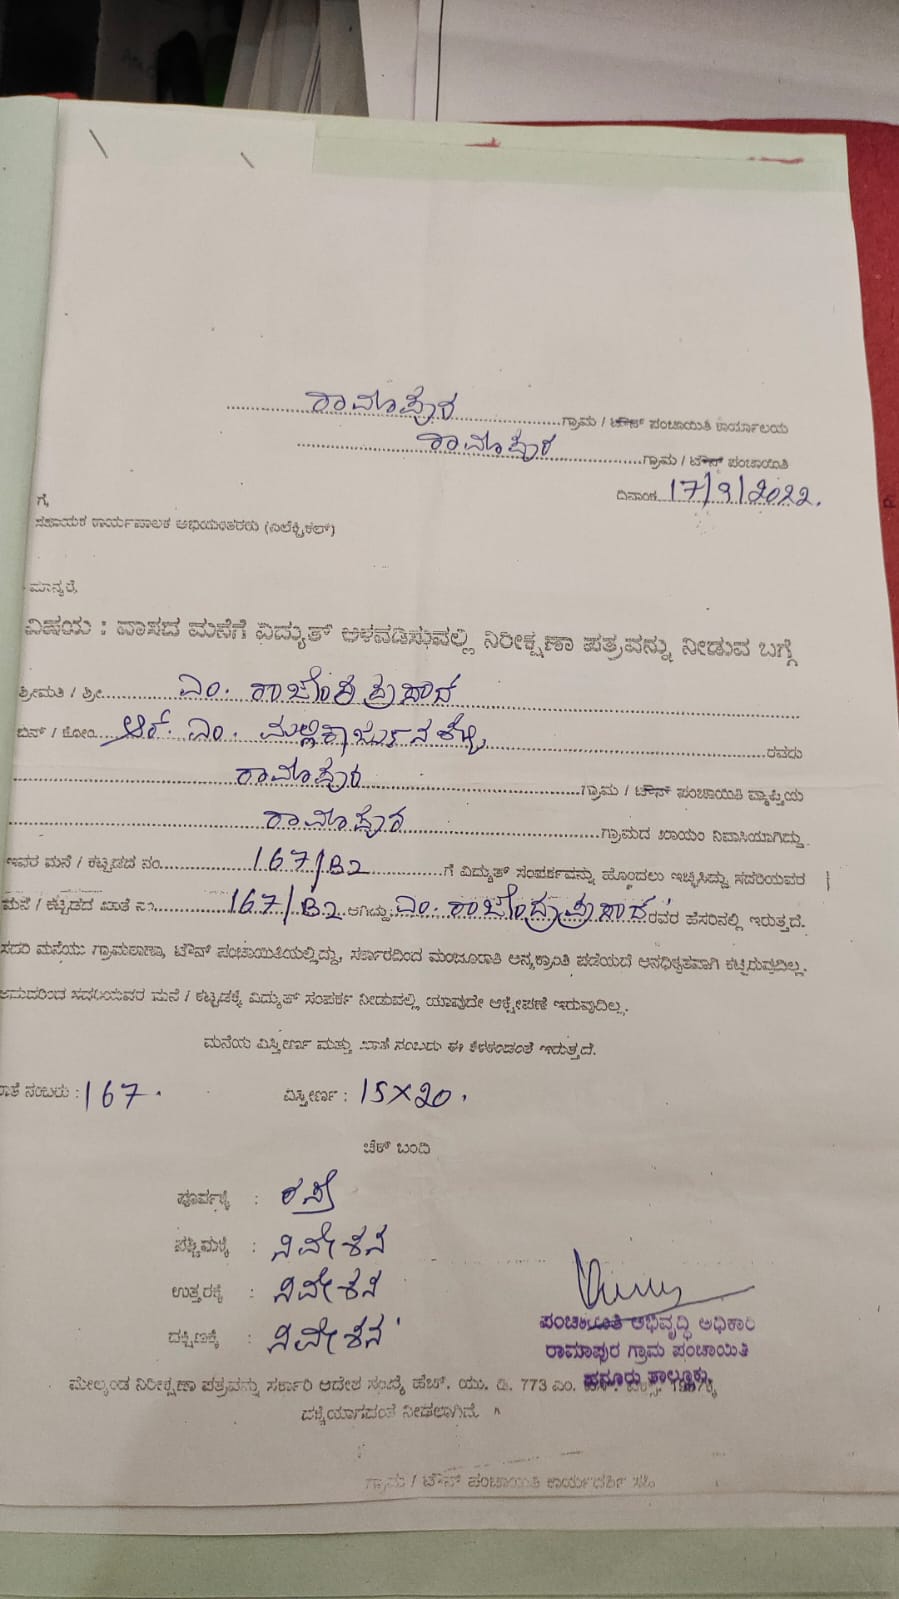 ರಾಮಾಪುರ ಗ್ರಾಮ / ಟೌನ್ ಪಂಚಾಯಿತಿ ಕಾರ್ಯಾಲಯ
ರಾಮಾಪುರ ಗ್ರಾಮ / ಟೌನ್ ಪಂಚಾಯಿತಿ
ದಿನಾಂಕ 17/9/2022.
ಗೆ,
ಸಹಾಯಕ ಕಾರ್ಯಪಾಲಕ ಅಭಿಯಂತರರು (ಎಲೆಕ್ಟ್ರಿಕಲ್)
ಮಾನ್ಯರೆ,
ವಿಷಯ : ವಾಸದ ಮನೆಗೆ ವಿದ್ಯುತ್ ಅಳವಡಿಸುವಲ್ಲಿ ನಿರೀಕ್ಷಣಾ ಪತ್ರವನ್ನು ನೀಡುವ ಬಗ್ಗೆ
ಶ್ರೀಮತಿ / ಶ್ರೀ ಎಂ. ರಾಜೇಂದ್ರ ಪ್ರಸಾದ
ಬಿನ್ / ಕೋಂ ಆರ್. ಎಂ. ಮಲ್ಲಿಕಾರ್ಜುನ ರವರು
ರಾಮಾಪುರ ಗ್ರಾಮ / ಟೌನ್ ಪಂಚಾಯಿತಿ ವ್ಯಾಪ್ತಿಯ
ರಾಮಾಪುರ ಗ್ರಾಮದ ಖಾಯಂ ನಿವಾಸಿಯಾಗಿದ್ದು
ಇವರ ಮನೆ / ಕಟ್ಟಡದ ನಂ 167/B2 ಗೆ ವಿದ್ಯುತ್ ಸಂಪರ್ಕವನ್ನು ಹೊಂದಲು ಇಚ್ಛಿಸಿದ್ದು ಸದರಿಯವರ
ಮನೆ / ಕಟ್ಟಡದ ಖಾತೆ ನಂ 167/B2 ಆಗಿದ್ದು ಎಂ. ರಾಜೇಂದ್ರಪ್ರಸಾದ ರವರ ಹೆಸರಿನಲ್ಲಿ ಇರುತ್ತದೆ.
ಸದರಿ ಮನೆಯು ಗ್ರಾಮಠಾಣಾ, ಟೌನ್ ಪಂಚಾಯಿತಿಯಲ್ಲಿದ್ದು, ಸರ್ಕಾರದಿಂದ ಮಂಜೂರಾತಿ ಅನ್ಯಕ್ರಾಂತಿ ಪಡೆಯದೆ ಅನಧಿಕೃತವಾಗಿ ಕಟ್ಟಿರುವುದಿಲ್ಲ.
ಆದುದರಿಂದ ಸದರಿಯವರ ಮನೆ / ಕಟ್ಟಡಕ್ಕೆ ವಿದ್ಯುತ್ ಸಂಪರ್ಕ ನೀಡುವಲ್ಲಿ ಯಾವುದೇ ಆಕ್ಷೇಪಣೆ ಇರುವುದಿಲ್ಲ.
ಮನೆಯ ವಿಸ್ತೀರ್ಣ ಮತ್ತು ಖಾತೆ ನಂಬರು ಈ ಕೆಳಕಂಡಂತೆ ಇರುತ್ತದೆ.
ಖಾತೆ ನಂಬರು : 167. ವಿಸ್ತೀರ್ಣ : 15X20.
ಚೆಕ್ ಬಂದಿ
ಪೂರ್ವಕ್ಕೆ : ರಸ್ತೆ
ಪಶ್ಚಿಮಕ್ಕೆ : ನಿವೇಶನ
ಉತ್ತರಕ್ಕೆ : ನಿವೇಶನ
ದಕ್ಷಿಣಕ್ಕೆ : ನಿವೇಶನ
ಪಂಚಾಯಿತಿ ಅಭಿವೃದ್ಧಿ ಅಧಿಕಾರಿ
ರಾಮಾಪುರ ಗ್ರಾಮ ಪಂಚಾಯಿತಿ
ಹನೂರು ತಾಲ್ಲೂಕು
ಮೇಲ್ಕಂಡ ನಿರೀಕ್ಷಣಾ ಪತ್ರವನ್ನು ಸರ್ಕಾರಿ ಆದೇಶ ಸಂಖ್ಯೆ ಹೆಚ್. ಯು. ಡಿ. 773 ಎಂ.
ನೀಡಲಾಗಿದೆ.
ಗ್ರಾಮ / ಟೌನ್ ಪಂಚಾಯಿತಿ ಕಾರ್ಯದರ್ಶಿ ಸಹಿ